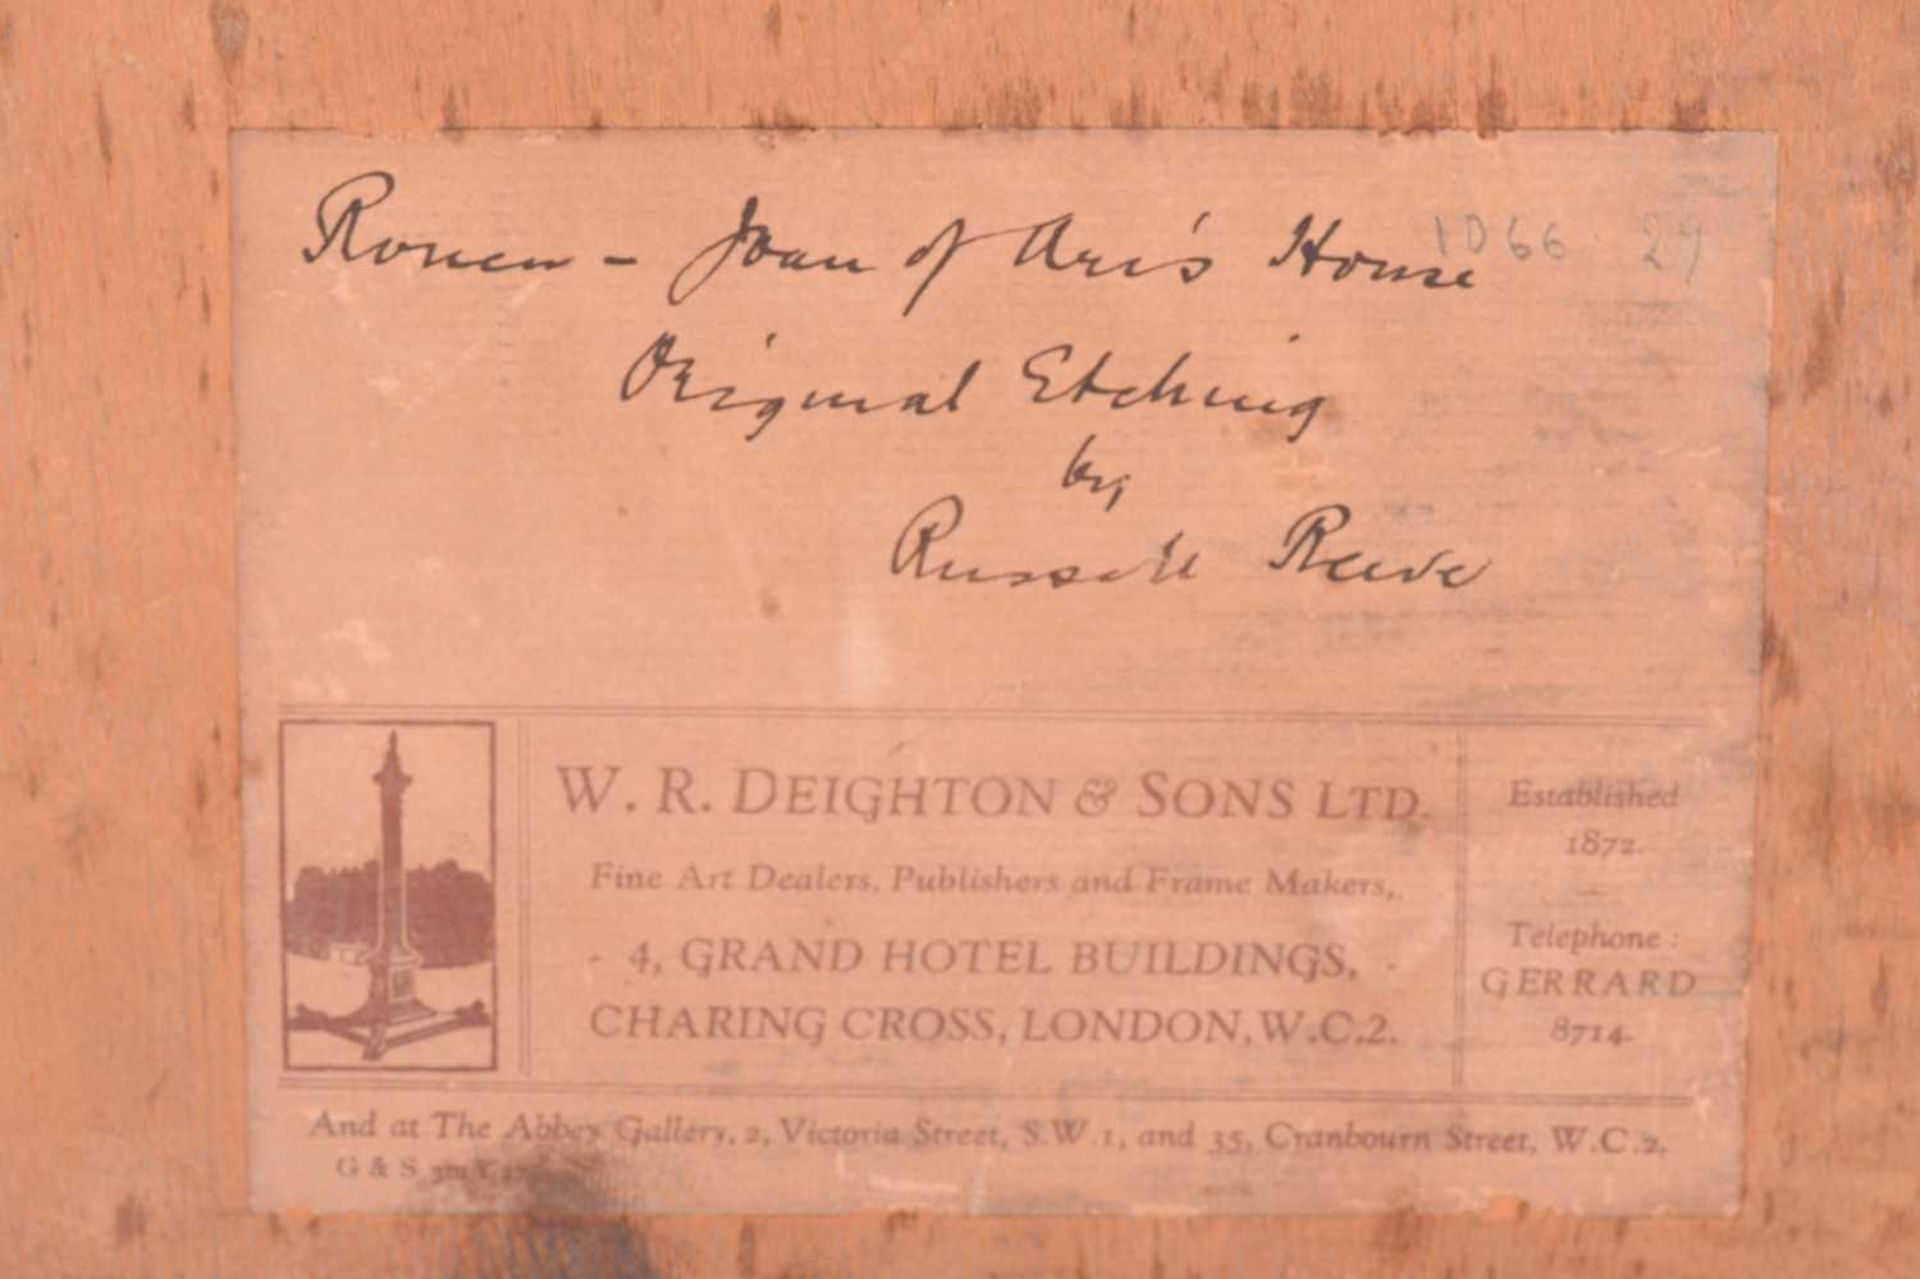 Rouen - Joan of Arc's House
1066 29
Original Etching
by
Russell Reeve
W. R. DEIGHTON & SONS LTD.
Fine Art Dealers, Publishers and Frame Makers,
- 4, GRAND HOTEL BUILDINGS, -
CHARING CROSS, LONDON, W.C.2.
Established
1872.
Telephone:
GERRARD
8714.
And at The Abbey Gallery, 2, Victoria Street, S.W.1, and 35, Cranbourn Street, W.C.2.
G & S